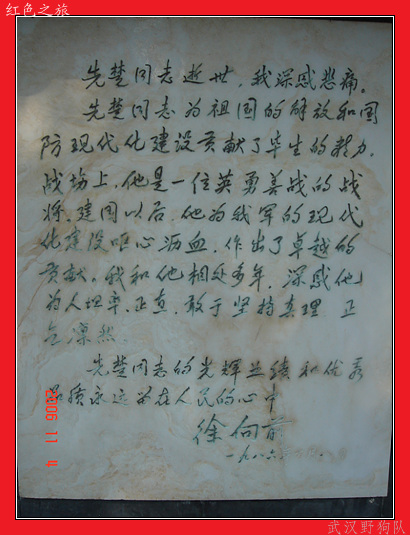 红色之旅
先楚同志逝世，我深感悲痛。
先楚同志为祖国的解放和国
防现代化建设贡献了毕生的精力。
战场上，他是一位英勇善战的战
将，建国以后，他为我军的现代
化建设呕心沥血，作出了卓越的
贡献。我和他相处多年，深感他
为人坦率、正直，敢于坚持真理，正
气凛然。
先楚同志的光辉业绩和优秀
品质永远留在人民的心中
徐向前
一九八六
2006 11 4
武汉野狗队